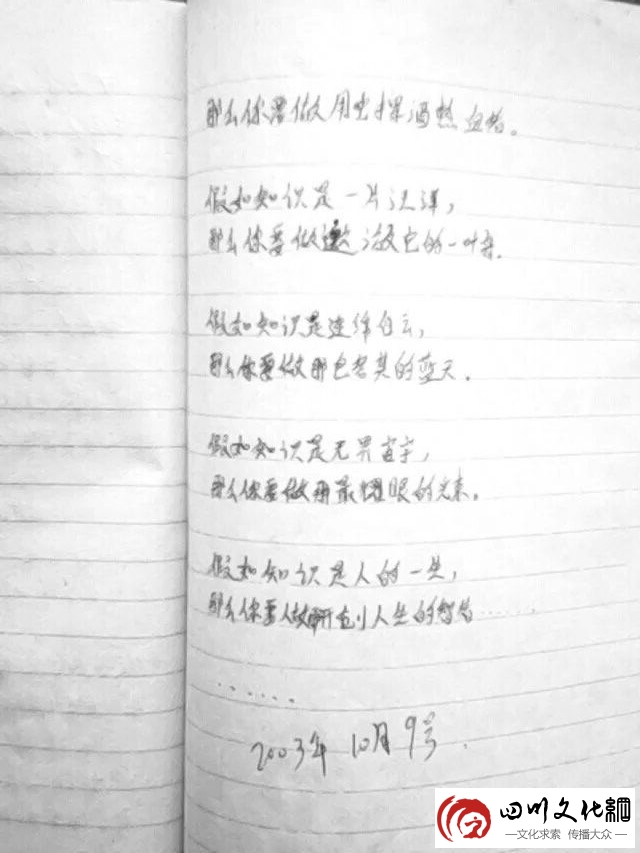 那么你要做用它挥洒热血者。
假如知识是一片汪洋，
那么你要做遨游它的一叶舟.
假如知识是连绵白云，
那么你要做那包容其的蓝天.
假如知识是无界宇，
那么你要做那最耀眼的光束。
假如知识是人的一生，
那么你要做创人生的智者……
……
2003年 10月 9号.
四川文化網
—文化求索 传播大众—